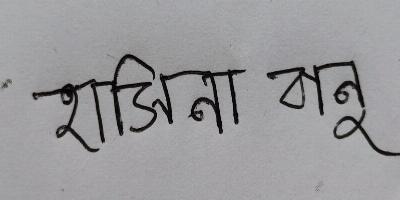 হাজিনা বানু